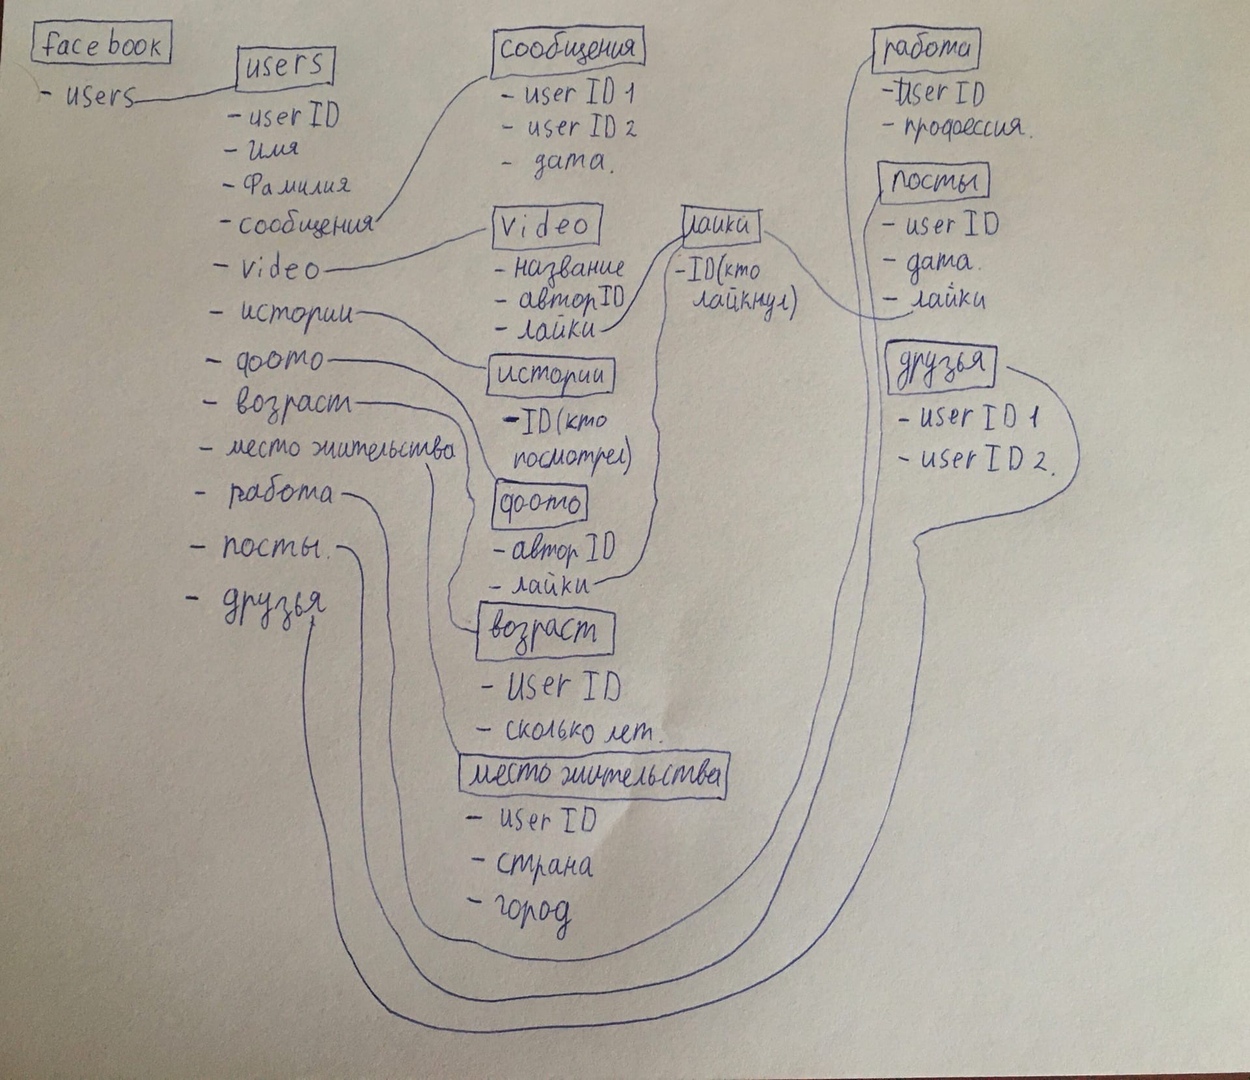 facebook
- users
users
- user ID
- Имя
- Фамилия
- сообщения
- video
- истории
- фото
- возраст
- место жительства
- работа
- посты.
- друзья
сообщения
- user ID 1
- user ID 2
- дата.
video
- название
- автор ID
- лайки
истории
- ID (кто
посмотрел)
фото
- автор ID
- лайки
возраст
- User ID
- сколько лет.
место жительства
- user ID
- страна
- город
лайки
- ID (кто
лайкнул)
работа
- User ID
- профессия.
посты
- user ID
- дата.
- лайки
друзья
- user ID 1
- user ID 2.